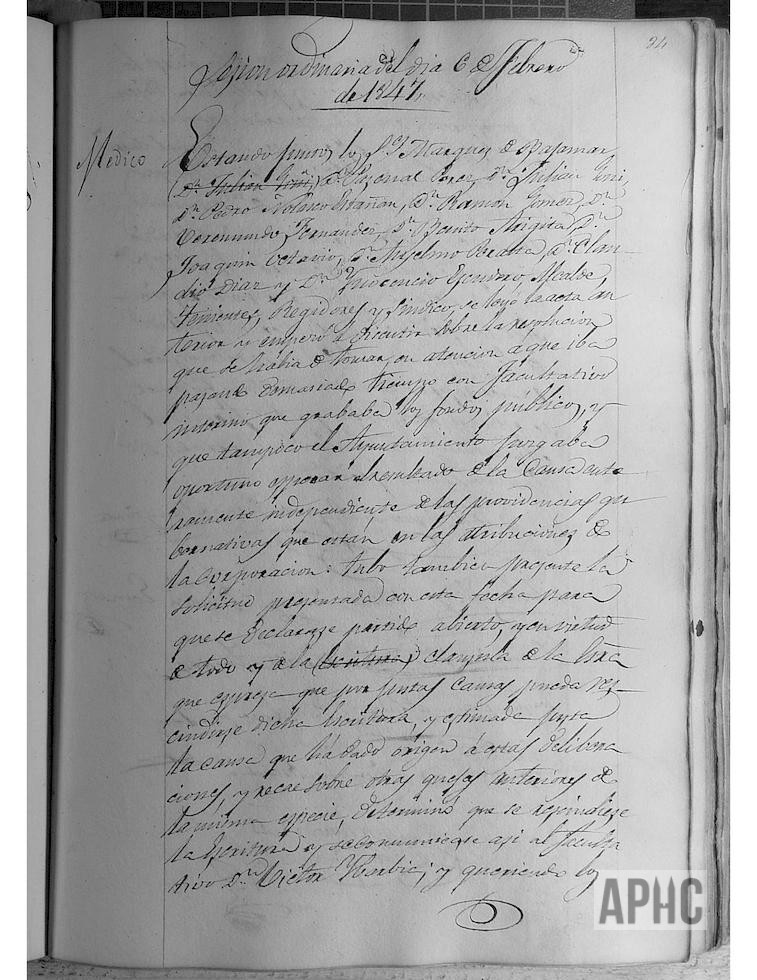 94
Sesion ordinaria del dia 6 de Febrero
de 1847,,
Medico
Estando juntos los S.S. Marques de Bajamar
(Dn. Julian Goñi) Dn. Pascual Perez, Dn. Julian Goñi,
Dn. Pedro Nolasco Marañon, Dn. Ramon Gomez, Dn.
Veremundo Fernandez, Dn. Benito Angita, Dn.
Joaquin Octavio, Dn. Anselmo Peralta, Dn. Clau-
dio Diaz y Dn. Ynocencio Escudero, Alcalde,
Tenientes, Regidores y Sindico, se leyó la acta an
terior y se empezó á discutir sobre la resolucion
que se habia de tomar, en atencion a que iba
pasando demasiado tiempo con facultativo
interino que grababa los fondos públicos, y
que tampoco el Ayuntamiento juzgaba
oportuno esperar el resultado de la Causa ente
ramente independiente de las providencias gu
bernativas que estan en las atribuciones de
la Corporacion: tubo tambien presente la
solicitud presentada con esta fecha para
que se declarase partido abierto, y en virtud
de todo y de la (escritura) clausula de la Esra.
que espresa que por justas causas pueda res-
cindirse dicha Escritura, y estimada justa
la causa que há dado origen á estas delibera
ciones, y recae sobre otras quejas anteriores de
la misma especie, determinó que se rescindiese
la Escritura y se comunicase asi al faculta
tivo Dn. Victor; y queriendo los
APHC